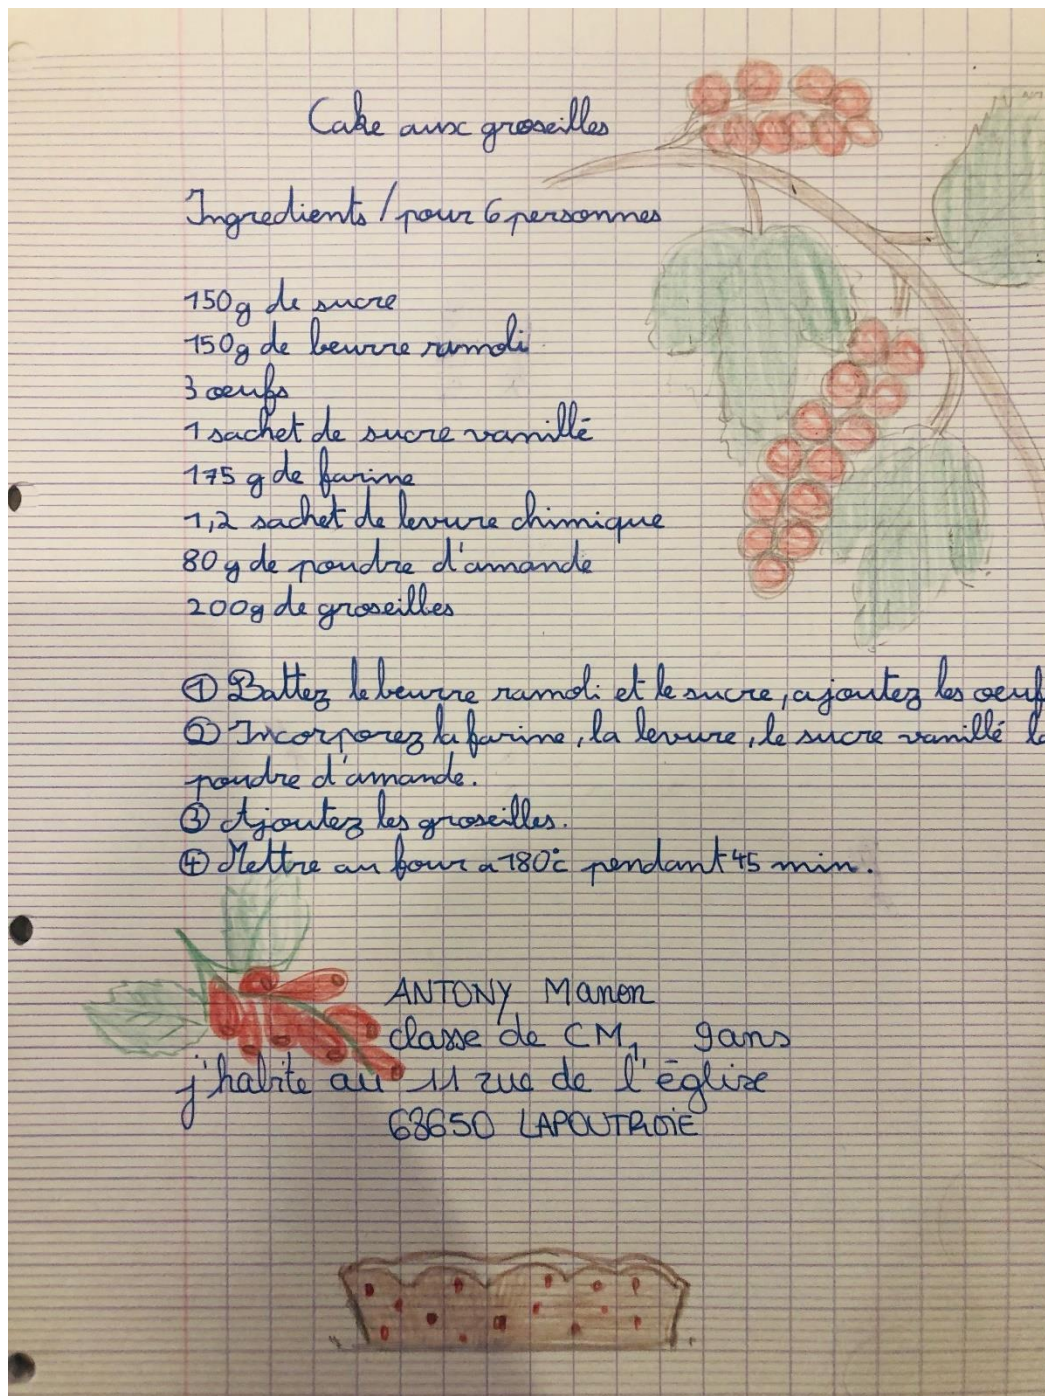 Cake aux groseilles
Ingredients / pour 6 personnes
150g de sucre
150g de beurre ramoli
3 œufs
1 sachet de sucre vanillé
175 g de farine
1,2 sachet de levure chimique
80 g de poudre d'amande
200g de groseilles
① Battez le beurre ramoli et le sucre, ajoutez les œuf
② Incorporez la farine, la levure, le sucre vanillé la
poudre d'amande.
③ Ajoutez les groseilles.
④ Mettre au four a 180°c pendant 45 min.
ANTONY Manon
classe de CM1 9ans
j'habite au 11 rue de l'église
68650 LAPOUTROIE